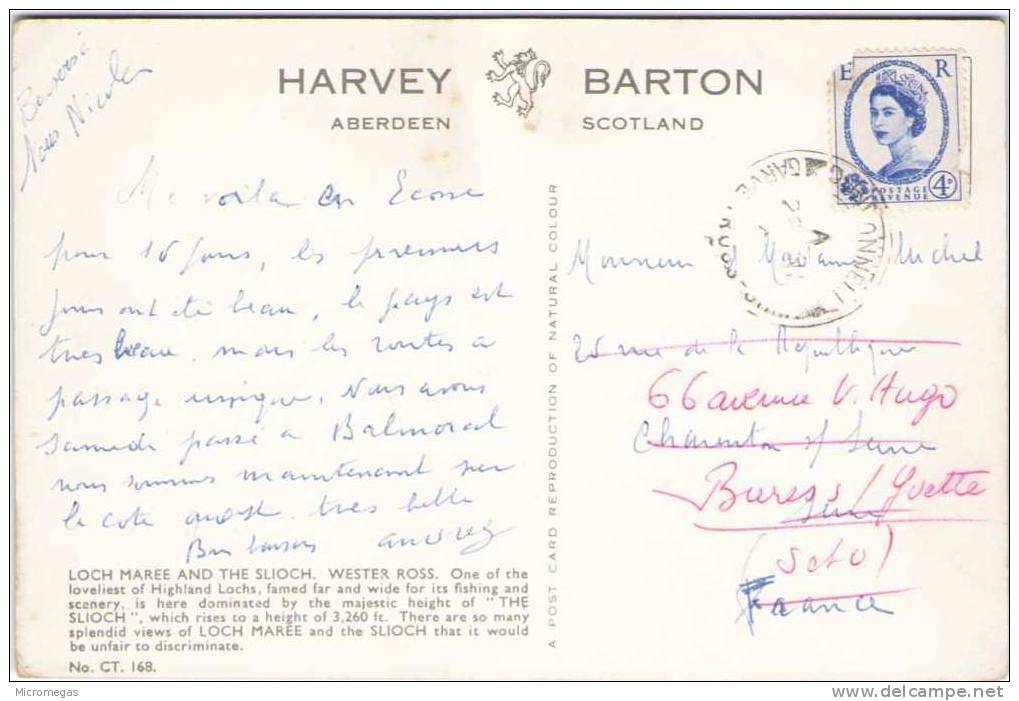 Bons baisers à
Nous Nicole
HARVEY BARTON
ABERDEEN SCOTLAND
E R
POSTAGE
REVENUE 4D
Me voila en Ecosse
pour 15 jours, les premiers
jours ont été beau, le pays est
tres beau, mais les routes a
passage unique. Nous avons
samedi passé a Balmoral
nous sommes maintenant sur
la cote ouest tres belle
Bons baisers
A POST CARD REPRODUCTION OF NATURAL COLOUR
Monsieur Madame Michel
25 rue de la République
66 avenue V. Hugo
Charenton s/ Seine
Bures s/ Yvette
Seine
(S et O)
France
LOCH MAREE AND THE SLIOCH. WESTER ROSS. One of the
loveliest of Highland Lochs, famed far and wide for its fishing and
scenery, is here dominated by the majestic height of "THE
SLIOCH", which rises to a height of 3,260 ft. There are so many
splendid views of LOCH MAREE and the SLIOCH that it would
be unfair to discriminate.
No. CT. 168.
Micromegas
delcampe.net